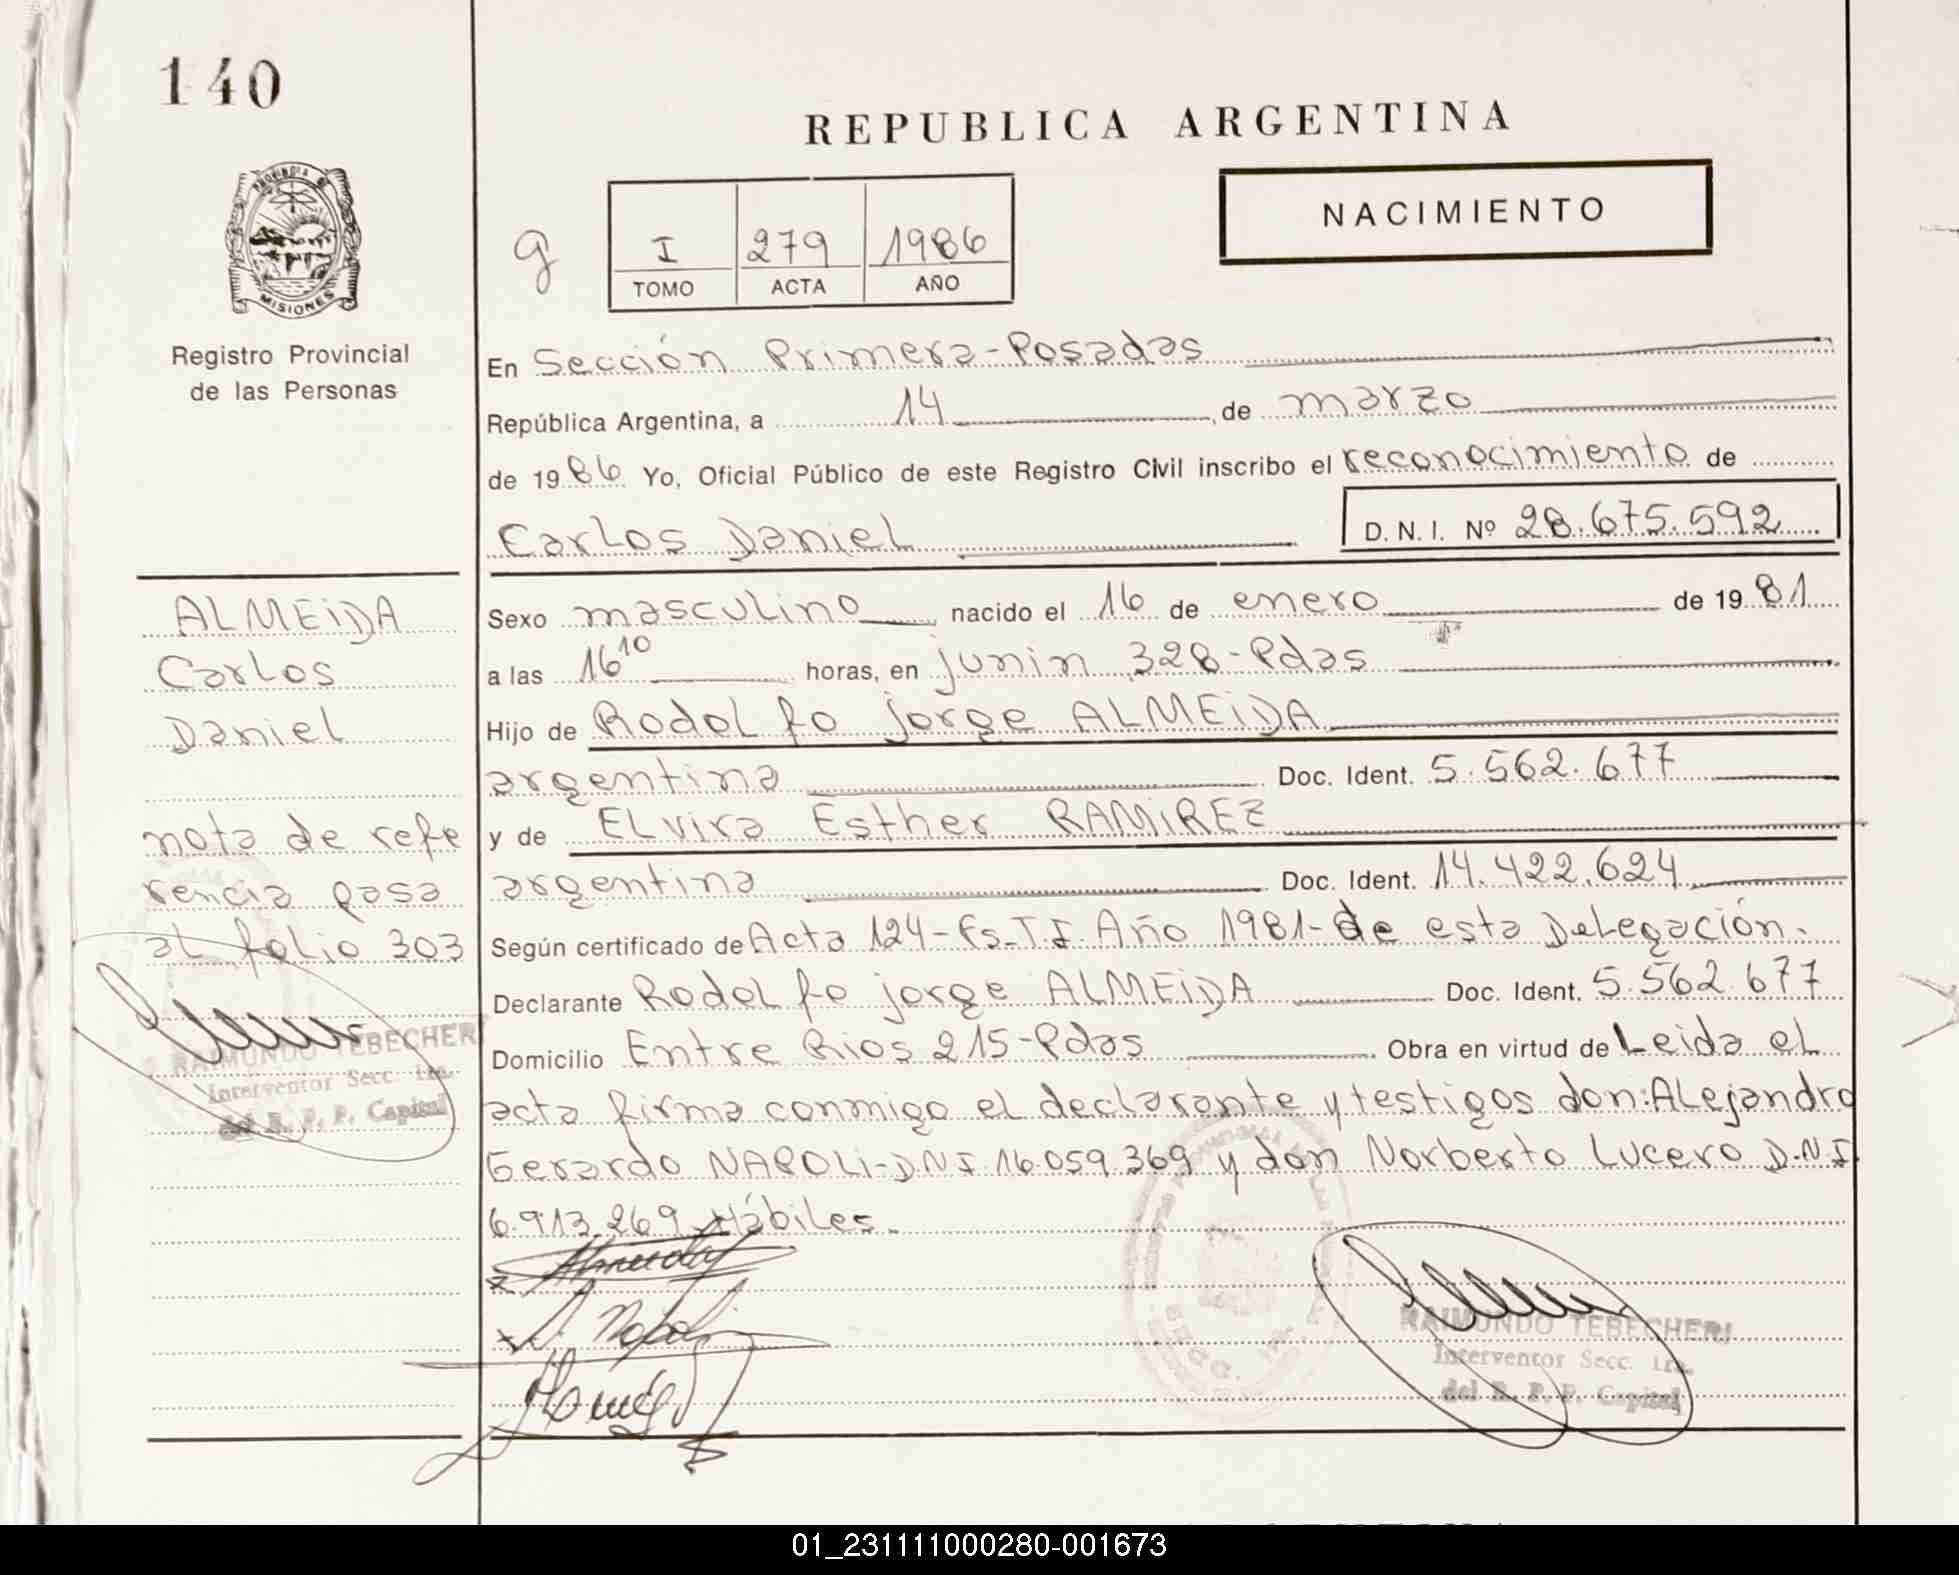 140
REPUBLICA ARGENTINA
PROVINCIA DE
MISIONES
Registro Provincial
de las Personas
g
I 279 1986
TOMO ACTA AÑO
NACIMIENTO
En Sección Primera-Posadas
República Argentina, a 14, de marzo
de 1986 Yo, Oficial Público de este Registro Civil inscribo el reconocimiento de
Carlos Daniel D.N.I. Nº 28.675.592
Sexo masculino nacido el 16 de enero de 1981
a las 16 10 horas, en junin 328-Pdas
Hijo de Rodolfo jorge ALMEiDA
argentina Doc. Ident. 5.562.677
y de ELvira Esther RAMiREZ
argentina Doc. Ident. 14.422.624
Según certificado de Acta 124-Fs-T I Año 1981-de esta Delegación.
Declarante Rodolfo jorge ALMEiDA Doc. Ident. 5.562.677
Domicilio Entre Rios 215-Pdas Obra en virtud de Leida el
acta firma conmigo el declarante y testigos don: Alejandro
Gerardo NAPOLi-DNI 16.059.369 y don Norberto Lucero D.N.I
6.913.269 Hábiles.
ALMEiDA
Carlos
Daniel
nota de refe
rencia pasa
al folio 303
RAIMUNDO TEBECHERI
Interventor Secc. 1ra.
del R. P. P. Capital
RAIMUNDO TEBECHERI
Interventor Secc. 1ra.
del R. P. P. Capital
01_231111000280-001673